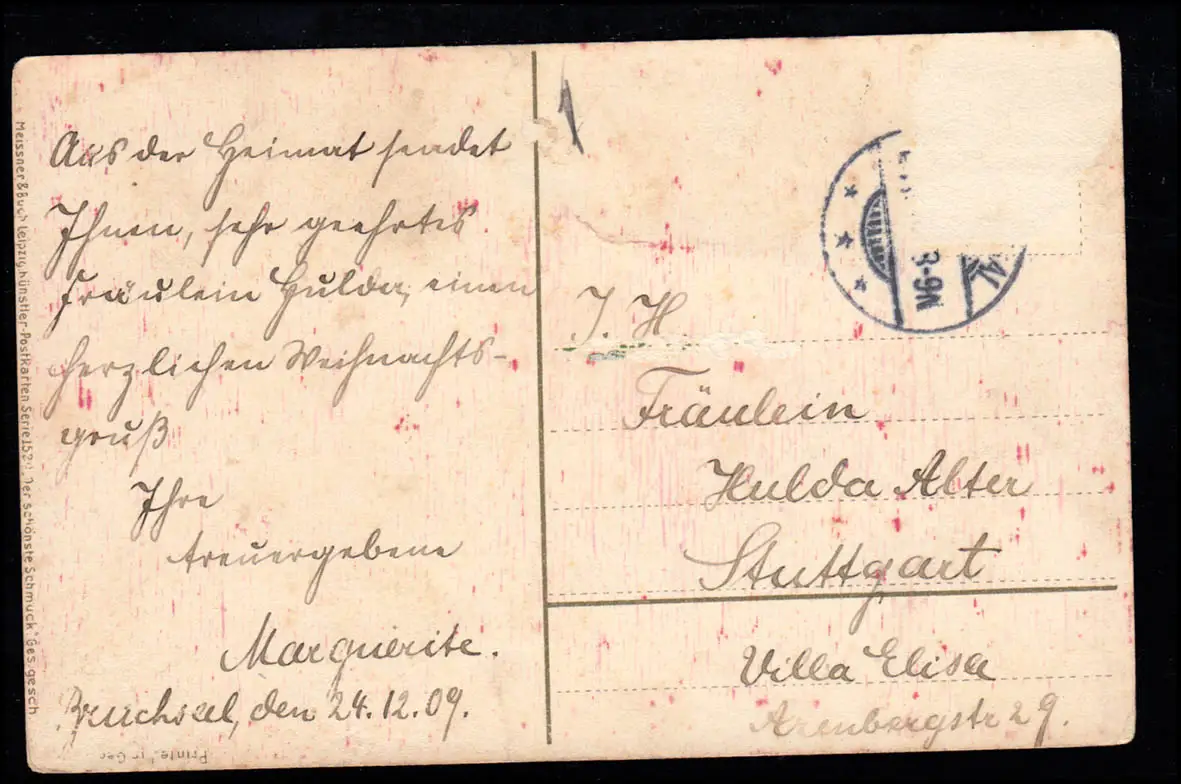 Aus der Heimat sendet
Ihnen, sehr geehrtes
Fräulein Hulda, einen
herzlichen Weihnachts-
gruß
Ihre
treuergebene
Marguerite.
Bruchsal, den 24.12.09.
Meissner & Buch Leipzig, Künstler-Postkarten Serie 152 "Der schönste Schmuck" Ges. gesch
Printe in Ger
1
N6-8
J. H
Fräulein
Hulda Alter
Stuttgart
Villa Elisa
29.